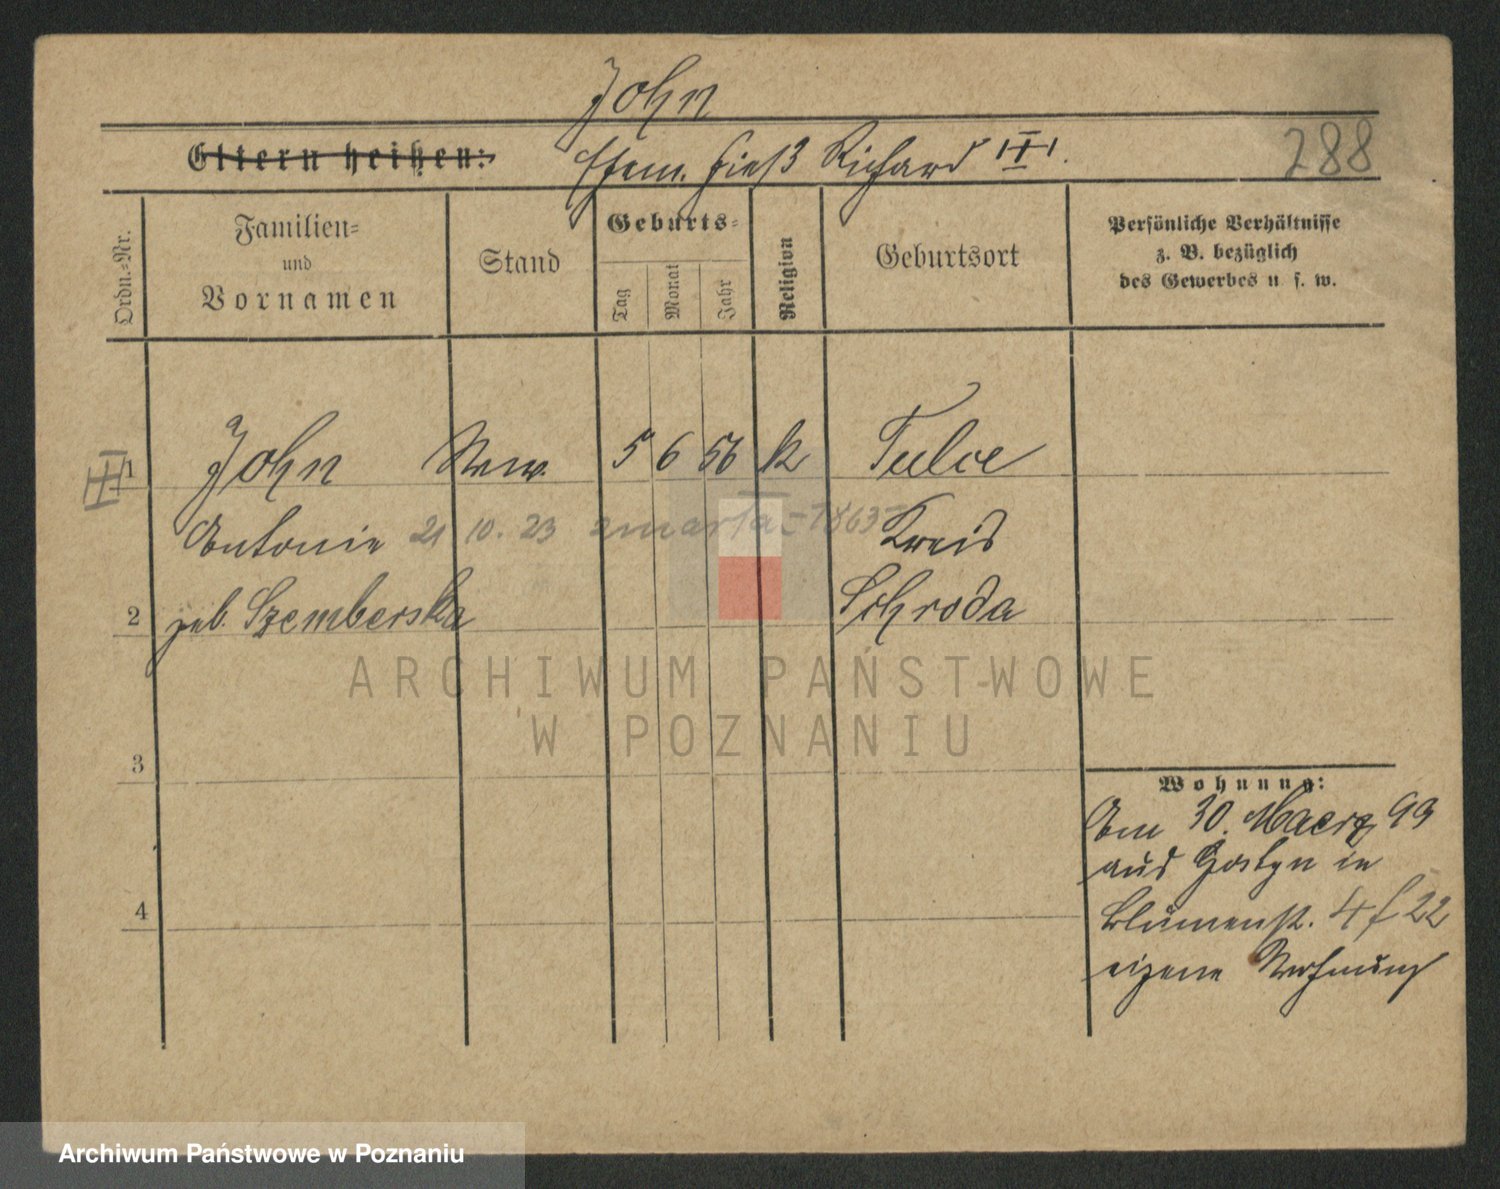 John
Eltern heißen: Ehem. hieß Richard III.
288
Ordn.-Nr.
Familien-
und
Vornamen
Stand
Geburts-
Tag
Monat
Jahr
Religion
Geburtsort
Persönliche Verhältnisse
z. B. bezüglich
des Gewerbes u. s. w.
III 1 John Wwe. 5 6 56 k Tulce
Antonie 21 10. 23 zmarła - 1863 - Kreis
2 geb. Szemberska Schroda
ARCHIWUM PAŃSTWOWE
W POZNANIU
3
Wohnung:
Am 30. Maerz 99
aus Gostyn in
4
Blumenst. 4 f 22
eigene Wohnung
Archiwum Państwowe w Poznaniu